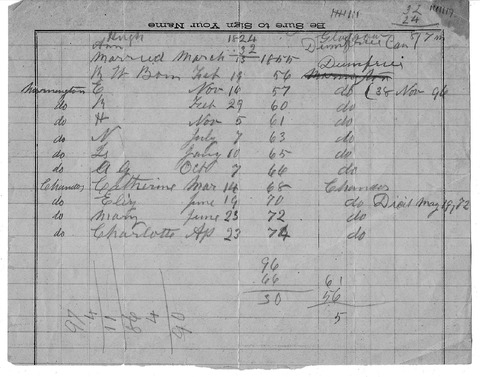 Be Sure to Sign Your Name
32
24
Hugh 1824 Glasgow
Ann 32 Dumfries Can
Married March 13 1855 Dumfries
R W Born Feb 19 56
Mornington C Nov 16 57 do (38 Nov 96
do R Feb 29 60 do
do H Nov 5 61 do
do N July 7 63 do
do Is Jany 10 65 do
do A G Oct 7 66 do
Chandos Catherine Mar 14 68 Chandos
do Eliz June 19 70 do Died May 19, 82
do Mary June 23 72 do
do Charlotte Ap 23 74 do
96
66
30
61
56
5
97
4
11
86
4
90